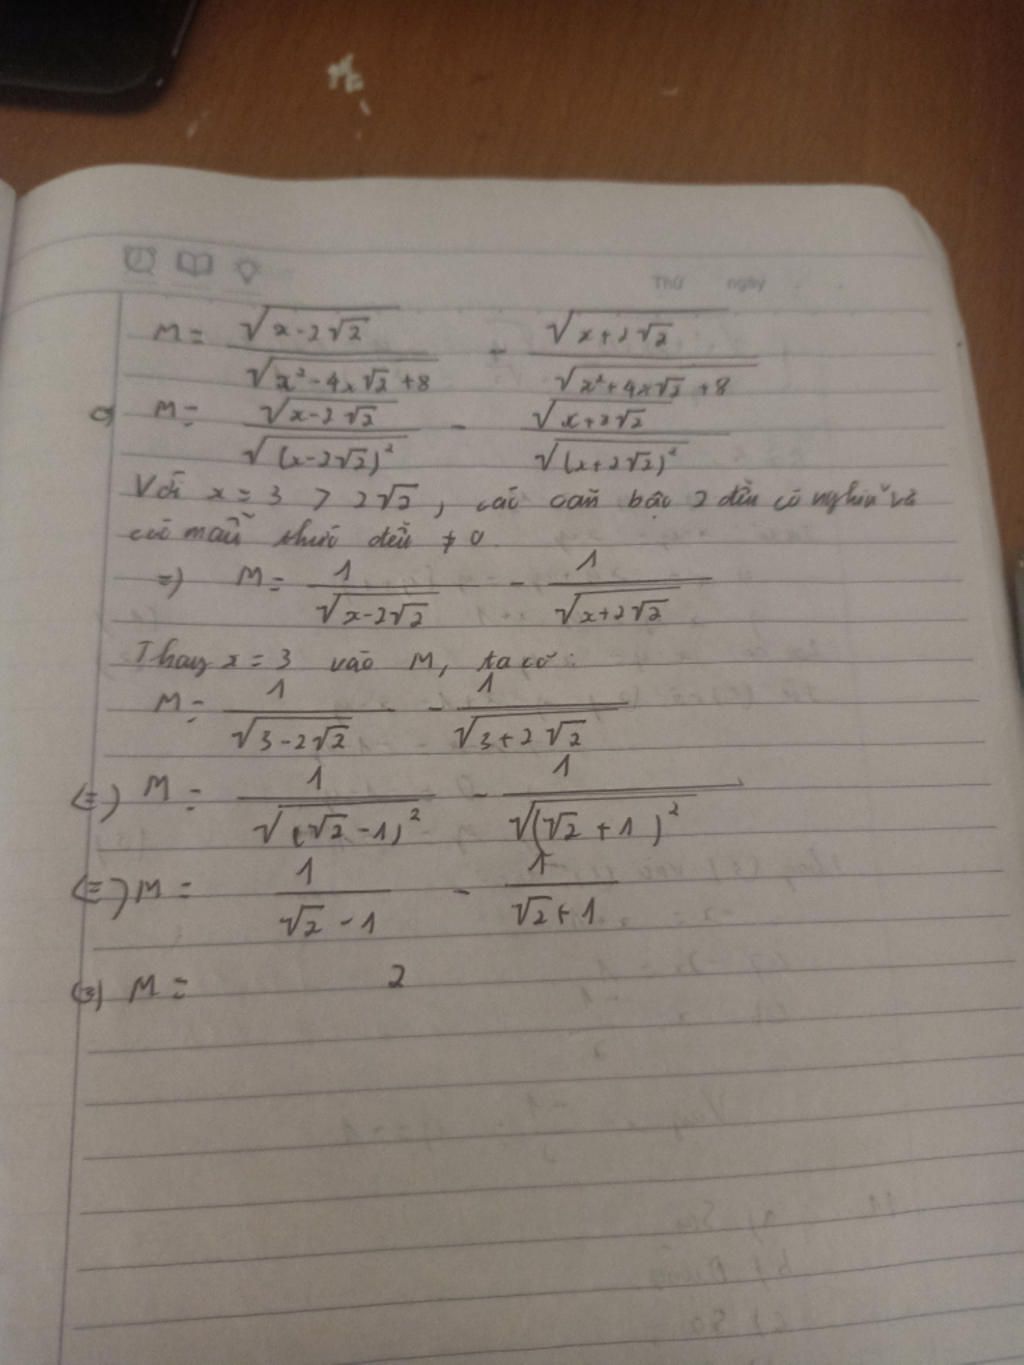 Thứ ngày
M = √(x-2√2) / √(x²-4x√2+8) - √(x+2√2) / √(x²+4x√2+8)
M = √(x-2√2) / √((x-2√2)²) - √(x+2√2) / √((x+2√2)²)
Với x = 3 > 2√2, các căn bậc 2 đều có nghĩa và
các mẫu thức đều ≠ 0
=) M = 1 / √(x-2√2) - 1 / √(x+2√2)
Thay x = 3 vào M, ta có:
M = 1 / √(3-2√2) - 1 / √(3+2√2)
(=) M = 1 / √((√2-1)²) - 1 / √((√2+1)²)
(=) M = 1 / (√2-1) - 1 / (√2+1)
(=) M = 2